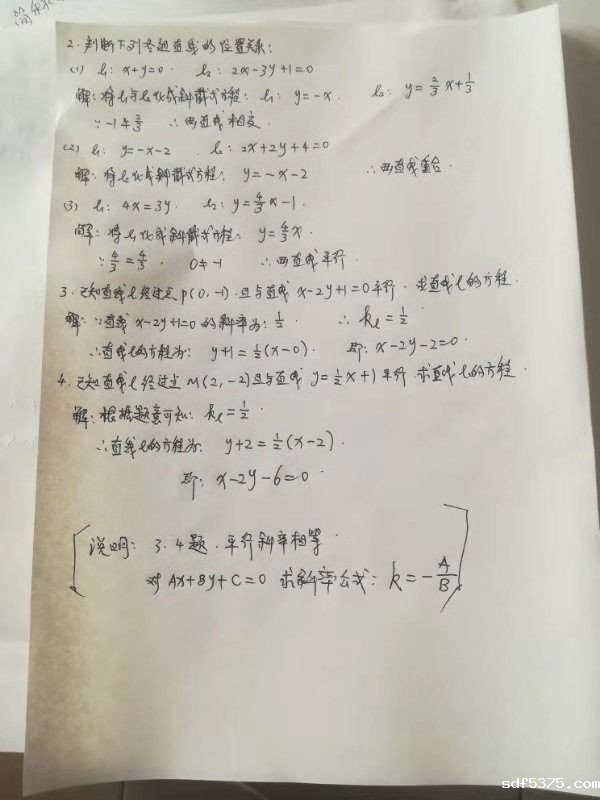 2. 判断下列各题直线的位置关系:
(1) l₁: x+y=0 l₂: 2x-3y+1=0
解: 将l₁与l₂化成斜截式方程: l₁: y=-x. l₂: y=2/3x+1/3
∵ -1≠2/3 ∴两直线相交.
(2) l₁: y=-x-2 l₂: 2x+2y+4=0
解: 将l₂化成斜截式方程: y=-x-2 ∴两直线重合.
(3) l₁: 4x=3y. l₂: y=4/3x-1.
解: 将l₁化成斜截式方程: y=4/3x.
∵ 4/3=4/3. 0≠-1 ∴两直线平行.
3. 已知直线l经过点P(0,-1).且与直线 x-2y+1=0平行. 求直线l的方程.
解: ∵直线 x-2y+1=0的斜率为: 1/2 ∴ kₗ=1/2
∴直线l的方程为: y+1=1/2(x-0). 即: x-2y-2=0.
4. 已知直线l经过点M(2,-2)且与直线 y=1/2x+1平行.求直线l的方程.
解: 根据题意可知: kₗ=1/2.
∴直线l的方程为: y+2=1/2(x-2).
即: x-2y-6=0.
说明: 3.4题.平行斜率相等.
对 Ax+By+C=0 求斜率公式: k=-A/B
sdf5375.com